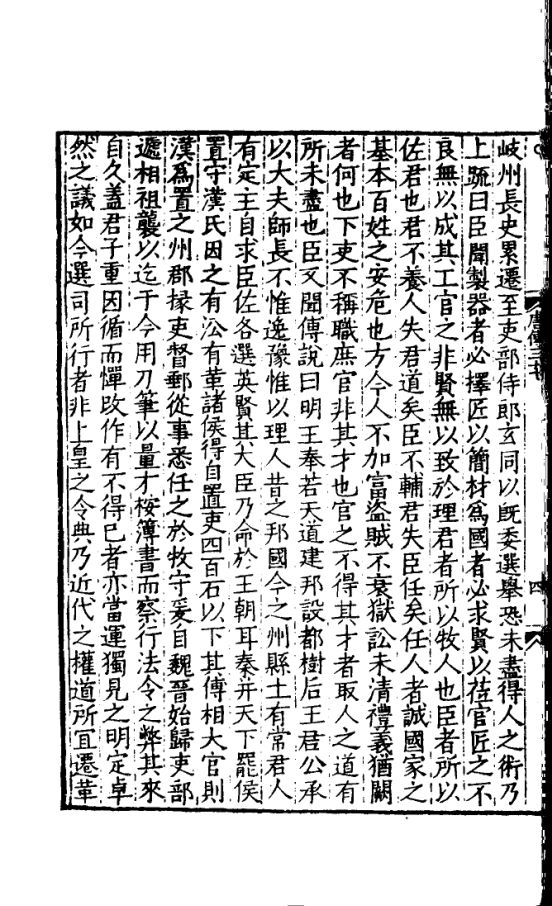 岐州長史累遷至吏部侍郎玄同以旣委選舉恐未盡得人之術乃
上䟽曰臣聞製器者必擇匠以簡材爲國者必求賢以莅官匠之不
良無以成其工官之非賢無以致於理君者所以牧人也臣者所以
佐君也君不養人失君道矣臣不輔君失臣任矣任人者誠國家之
基本百姓之安危也方今人不加富盜賊不衰獄訟未清禮義猶闕
者何也下吏不稱職庶官非其才也官之不得其才者取人之道有
所未盡也臣又聞傳說曰明王奉若天道建邦設都樹后王君公承
以大夫師長不惟逸豫惟以理人昔之邦國今之州縣士有常君人
有定主自求臣佐各選英賢其大臣乃命於王朝耳秦并天下罷侯
置守漢氏因之有沿有革諸侯得自置吏四百石以下其傅相大官則
漢爲置之州郡掾吏督郵從事悉任之於牧守爰自魏晉始歸吏部
遞相祖襲以迄于今用刀筆以量才桉簿書而察行法令之弊其來
自久蓋君子重因循而憚改作有不得已者亦當運獨見之明定卓
然之議如今選司所行者非上皇之令典乃近代之權道所宜遷革
四